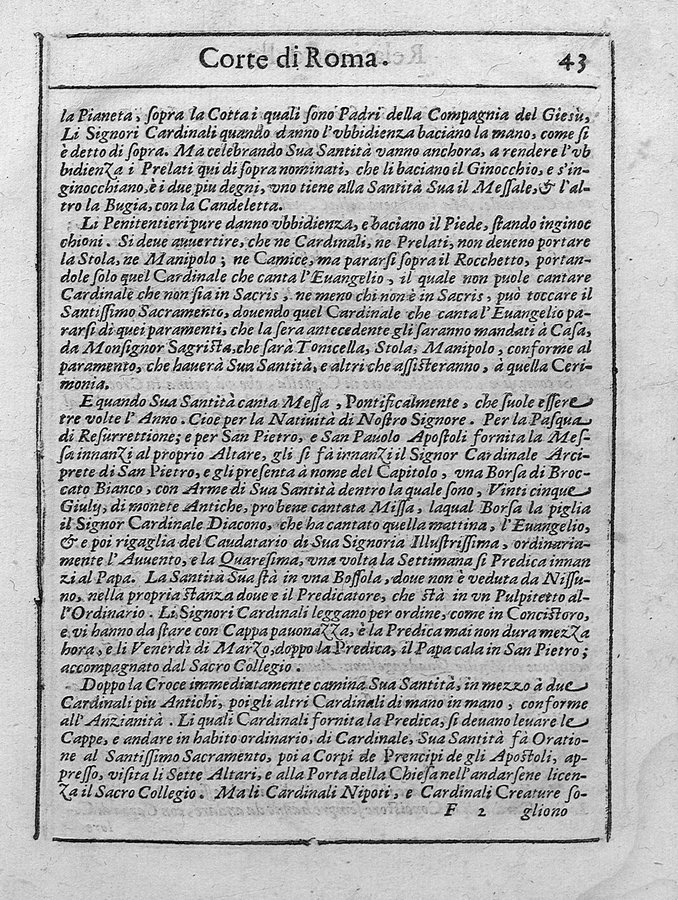 Corte di Roma. 43
la Pianeta, sopra la Cotta i quali sono Padri della Compagnia del Giesù,
Li Signori Cardinali quando danno l'vbbidienza baciano la mano, come si
è detto di sopra. Ma celebrando Sua Santità vanno anchora, a rendere l'vb
bidienza i Prelati qui di sopra nominati, che li baciano il Ginocchio, e s'in-
ginocchiano, è i due piu degni, vno tiene alla Santità Sua il Messale, & l'al-
tro la Bugia, con la Candeletta.
Li Penitentieri pure danno vbbidienza, e baciano il Piede, stando inginoc
chioni. Si deue auuertire, che ne Cardinali, ne Prelati, non deueno portare
la Stola, ne Manipolo; ne Camice, ma pararsi sopra il Rocchetto, portan-
dole solo quel Cardinale che canta l'Euangelio, il quale non puole cantare
Cardinale che non sia in Sacris, ne meno chi non è in Sacris, può toccare il
Santissimo Sacramento, douendo quel Cardinale che canta l'Euangelio pa-
rarsi di quei paramenti, che la sera antecedente gli saranno mandati à Casa,
da Monsignor Sagrista, che sarà Tonicella, Stola, Manipolo, conforme al
paramento, che hauerà Sua Santità, e altri che assisteranno, à quella Ceri-
monia.
E quando Sua Santità canta Messa, Pontificalmente, che suole essere
tre volte l'Anno. Cioe per la Natiuità di Nostro Signore. Per la Pasqua
di Resurrettione; e per San Pietro, e San Pauolo Apostoli fornita la Mes-
sa innanzi al proprio Altare, gli si fà innanzi il Signor Cardinale Arci-
prete di San Pietro, e gli presenta à nome del Capitolo, vna Borsa di Broc-
cato Bianco, con Arme di Sua Santità dentro la quale sono, Vinti cinque
Giuly, di monete Antiche, pro bene cantata Missa, laqual Borsa la piglia
il Signor Cardinale Diacono, che ha cantato quella mattina, l'Euangelio,
& e poi rigaglia del Caudatario di Sua Signoria Illustrissima, ordinaria-
mente l'Auuento, e la Quaresima, vna volta la Settimana si Predica innan
zi al Papa. La Santità Sua stà in vna Bossola, doue non è veduta da Nissu-
no, nella propria stanza doue e il Predicatore, che stà in vn Pulpitetto al-
l'Ordinario. Li Signori Cardinali leggano per ordine, come in Concistoro,
e vi hanno da stare con Cappa pauonazza, è la Predica mai non dura mezza
hora, e li Venerdì di Marzo, doppo la Predica, il Papa cala in San Pietro;
accompagnato dal Sacro Collegio.
Doppo la Croce immediatamente camina Sua Santità, in mezzo à due
Cardinali piu Antichi, poi gli altri Cardinali di mano in mano, conforme
all'Anzianità. Li quali Cardinali fornita la Predica, si deuano leuare le
Cappe, e andare in habito ordinario, di Cardinale, Sua Santità fà Oratio-
ne al Santissimo Sacramento, poi a Corpi de Prencipi de gli Apostoli, ap-
presso, visita li Sette Altari, e alla Porta della Chiesa nell'andarsene licen-
za il Sacro Collegio. Ma li Cardinali Nipoti, e Cardinali Creature so-
F 2 gliono